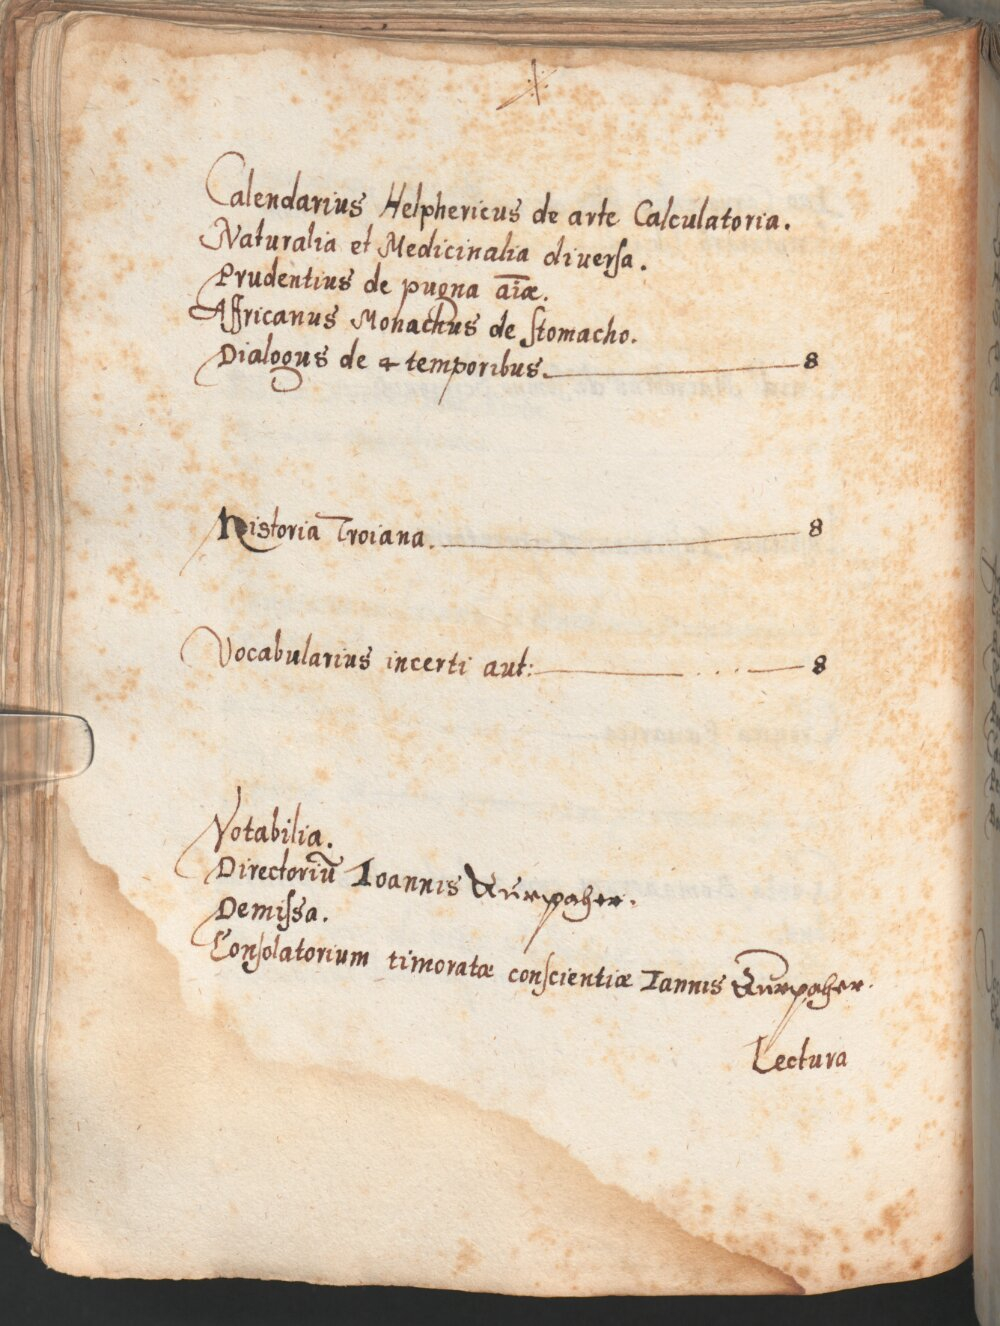 Calendarius Helphericus de arte Calculatoria.
Naturalia et Medicinalia diuersa.
Prudentius de pugna aīæ.
Affricanus Monachus de stomacho.
Dialogus de 4 temporibus. 8
Historia Troiana. 8
Vocabularius incerti aut: 8
Notabilia.
Directoriū Ioannis
Demissa.
Consolatorium timoratæ conscientiæ Iannis
Lectura